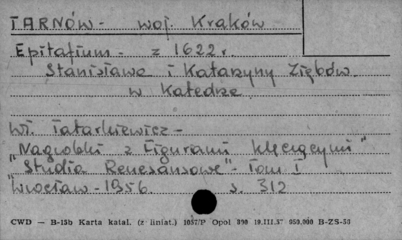 TARNÓW - woj. Kraków
Epitafium - z 1622 r
Stanisława i Katarzyny Ziębów
w Katedze
Wł. Tatarkiewicz -
"Nagrobki z figurami klęczącymi"
"Studia Renesansowe" - Tom I
Wrocław - 1956. s. 312
CWD — B-15b Karta katal. (z liniat.) 1057/P Opol 890 10.III.5 950.000 B-ZS-53